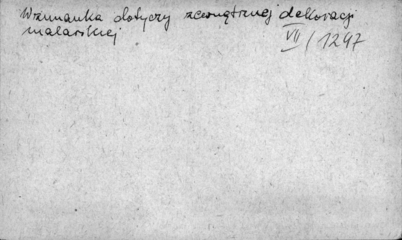 Wzmianka dotyczy zewnętrznej dekoracji
malarskiej VII/1297